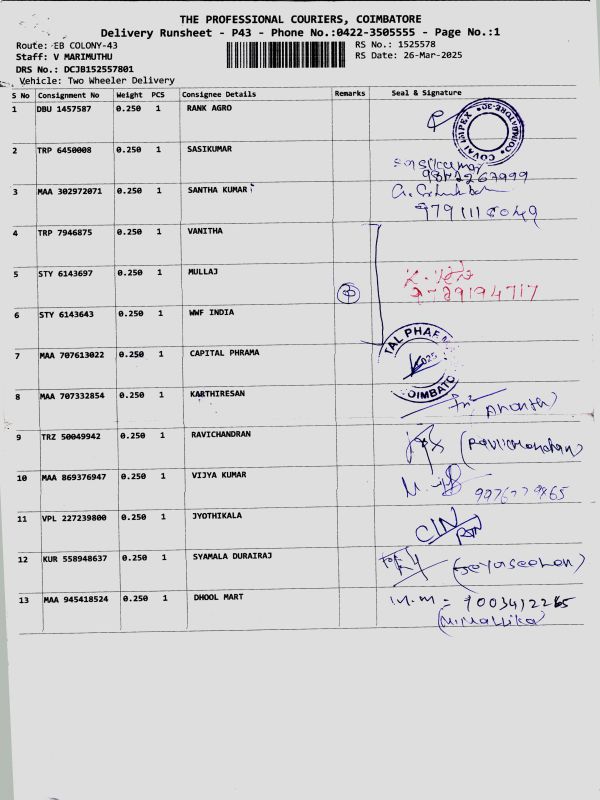 THE PROFESSIONAL COURIERS, COIMBATORE
Delivery Runsheet - P43 - Phone No.:0422-3505555 - Page No.:1
Route: EB COLONY-43
RS No.: 1525578
Staff: V MARIMUTHU
RS Date: 26-Mar-2025
DRS No.: DCJB152557801
Vehicle: Two Wheeler Delivery
S No Consignment No Weight PCS Consignee Details Remarks Seal & Signature
1 DBU 1457587 0.250 1 RANK AGRO
COVAI IMPEX
2 TRP 6450008 0.250 1 SASIKUMAR
Sasikumar
3 MAA 302972071 0.250 1 SANTHA KUMAR
4 TRP 7946875 0.250 1 VANITHA
5 STY 6143697 0.250 1 MULLAJ
6 STY 6143643 0.250 1 WWF INDIA
7 MAA 707613022 0.250 1 CAPITAL PHRAMA
TAL PHAR
OIMBATO
8 MAA 707332854 0.250 1 KARTHIRESAN
9 TRZ 50049942 0.250 1 RAVICHANDRAN (Ravichandran)
10 MAA 869376947 0.250 1 VIJYA KUMAR
11 VPL 227239800 0.250 1 JYOTHIKALA
12 KUR 558948637 0.250 1 SYAMALA DURAIRAJ (Jeyaseelan)
13 MAA 945418524 0.250 1 DHOOL MART M.M = 9003412265
(M.Mallika)